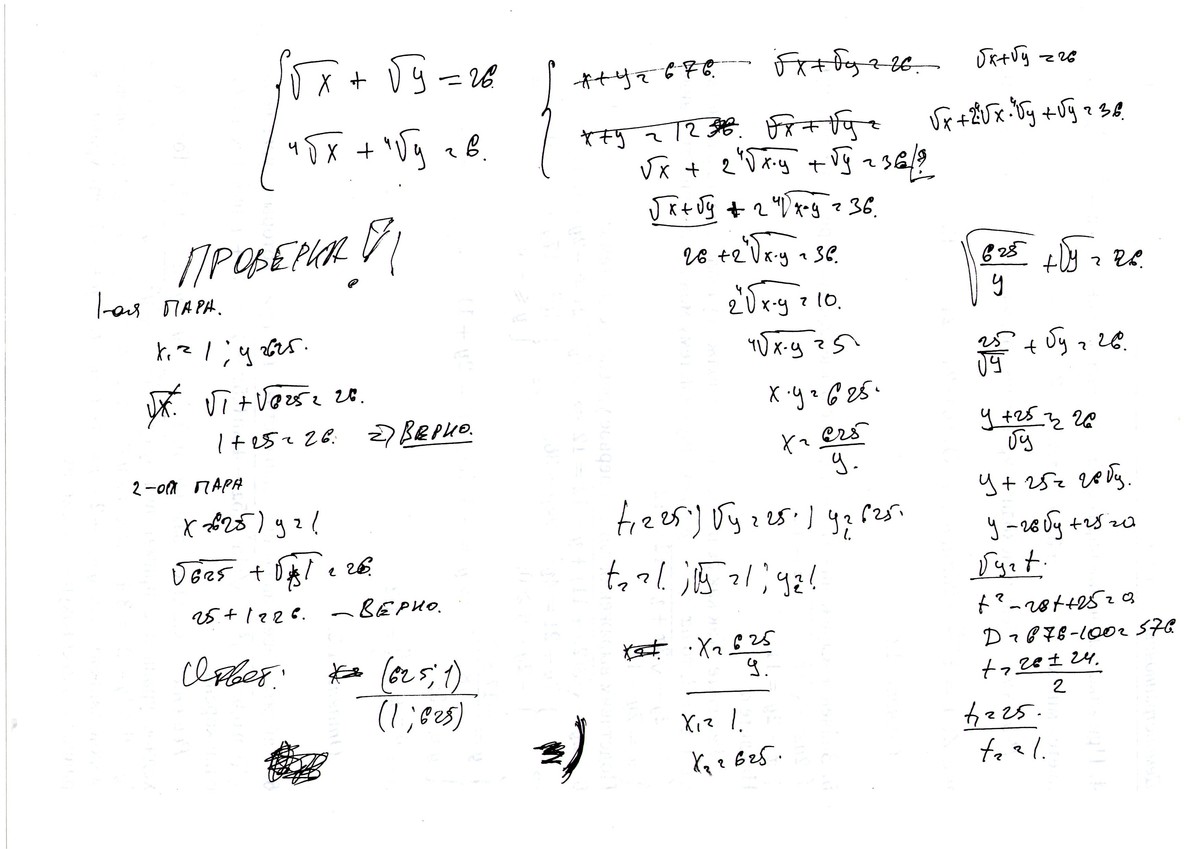 √x + √y = 26.
⁴√x + ⁴√y = 6.
x + y = 676. √x + √y = 26. √x + √y = 26
x + y = 1236. √x + √y = √x + 2⁴√x · ⁴√y + √y = 36.
√x + 2⁴√x·y + √y = 36/?
√x + √y + 2⁴√x·y = 36.
26 + 2⁴√x·y = 36.
2⁴√x·y = 10.
⁴√x·y = 5
x · y = 625.
x = 625/y.
√625/y + √y = 26.
25/√y + √y = 26.
y + 25/√y = 26
y + 25 = 26√y.
y – 26√y + 25 = 0
√y = t.
t² – 26t + 25 = 0
D = 676 – 100 = 576.
t = 26 ± 24./2
t₁ = 25.
t₂ = 1.
t₁ = 25; √y = 25; y₁ = 625.
t₂ = 1.; √y = 1; y₂ = 1.
x = 625/y.
x₁ = 1.
x₂ = 625.
ПРОВЕРКА !
1-ая ПАРА.
x₁ = 1; y = 625.
√x. √1 + √625 = 26.
1 + 25 = 26. => ВЕРНО.
2-ая ПАРА
x = 625; y = 1.
√625 + √1 = 26.
25 + 1 = 26. – ВЕРНО.
Ответ: (625; 1)
(1; 625)